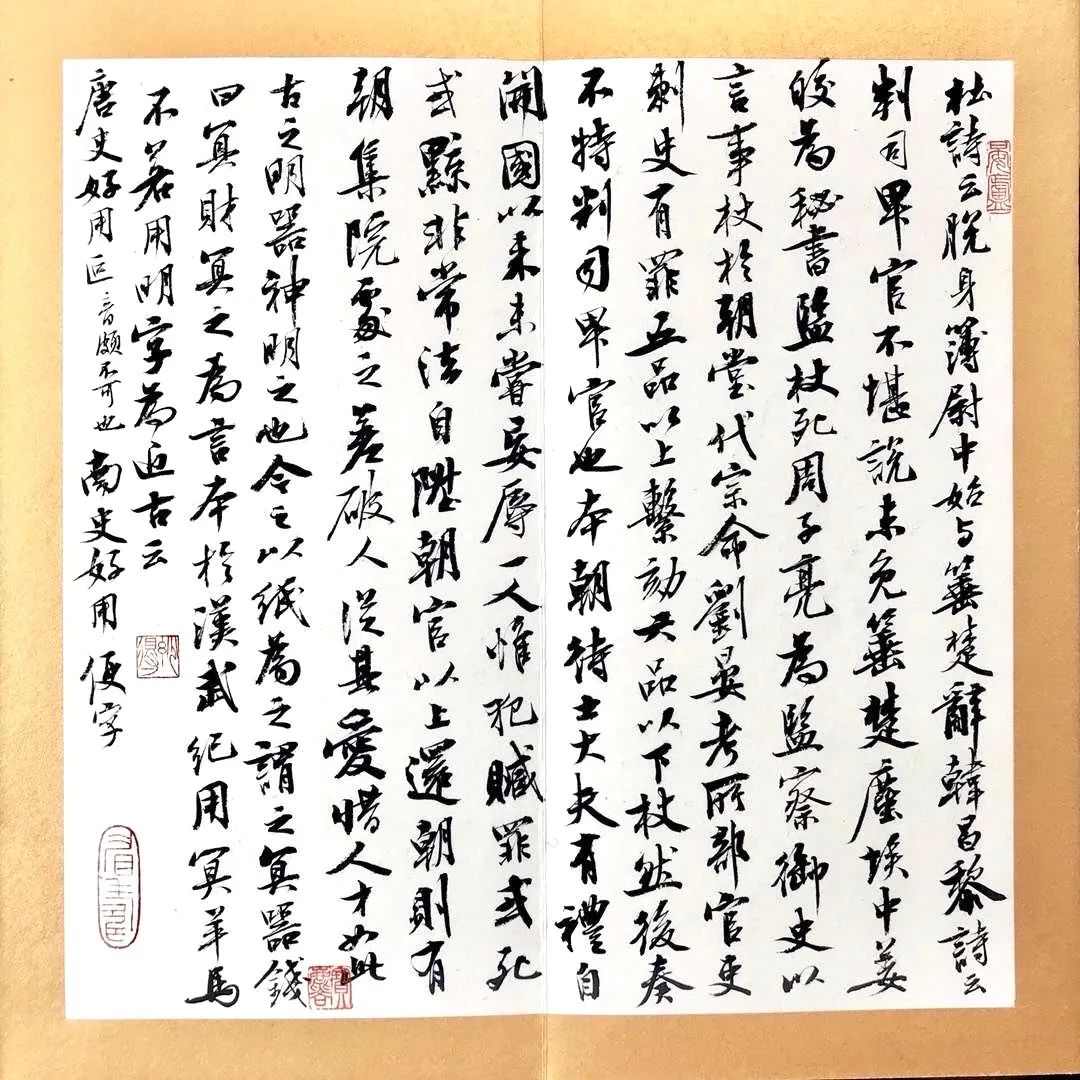 杜詩云脫身簿尉中始与箠楚辭韓昌黎詩云
判司卑官不堪說未免箠楚塵埃中姜
皎為秘書監杖死周子亮為監察御史以
言事杖於朝堂代宗命劉晏考所部官吏
刺史有罪五品以上繫劾六品以下杖然後奏
不特判司卑官也本朝待士大夫有禮自
開國以來未嘗妄辱一人惟犯贓罪或死
或黥非常法自陞朝官以上還朝則有
朝集院處之差破人從其愛惜人才如此
古之明器神明之也今之以紙為之謂之冥器錢
曰冥財冥之為言本於漢武紀用冥羊馬
不若用明字為近古云
唐史好用叵音頗不可也南史好用便字